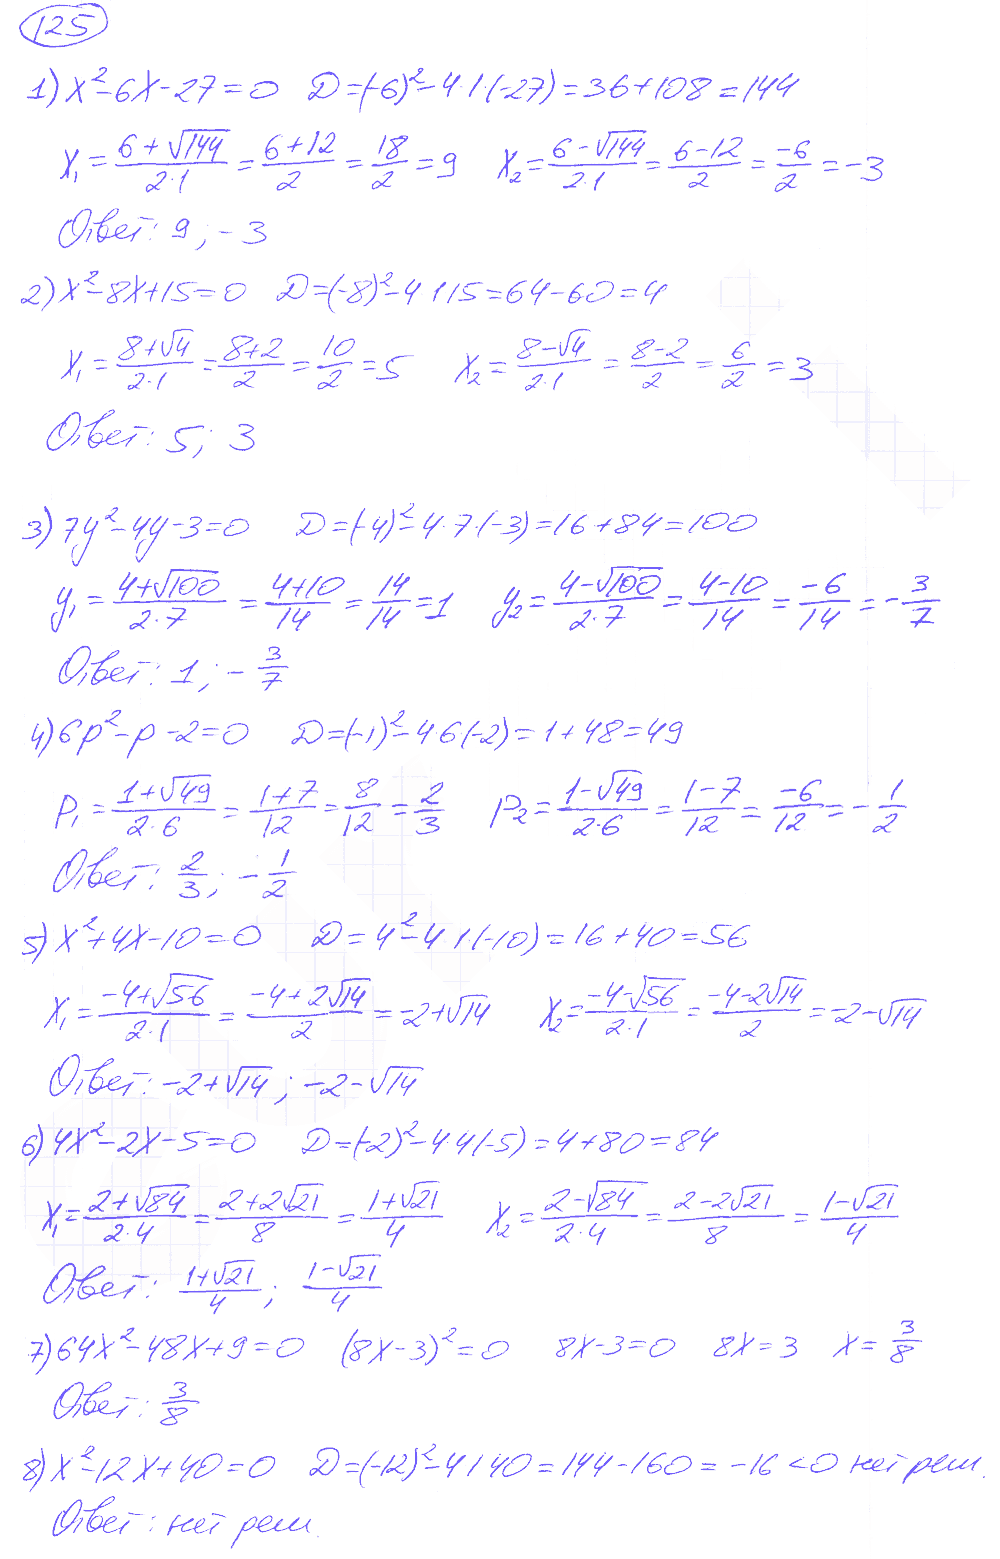 125
1) x²-6x-27=0 D=(-6)²-4·1·(-27)=36+108=144
x₁=(6+√144)/(2·1)=(6+12)/2=18/2=9 x₂=(6-√144)/(2·1)=(6-12)/2=-6/2=-3
Ответ: 9; -3
2) x²-8x+15=0 D=(-8)²-4·1·15=64-60=4
x₁=(8+√4)/(2·1)=(8+2)/2=10/2=5 x₂=(8-√4)/(2·1)=(8-2)/2=6/2=3
Ответ: 5; 3
3) 7y²-4y-3=0 D=(-4)²-4·7·(-3)=16+84=100
y₁=(4+√100)/(2·7)=(4+10)/14=14/14=1 y₂=(4-√100)/(2·7)=(4-10)/14=-6/14=-3/7
Ответ: 1; -3/7
4) 6p²-p-2=0 D=(-1)²-4·6·(-2)=1+48=49
p₁=(1+√49)/(2·6)=(1+7)/12=8/12=2/3 p₂=(1-√49)/(2·6)=(1-7)/12=-6/12=-1/2
Ответ: 2/3; -1/2
5) x²+4x-10=0 D=4²-4·1·(-10)=16+40=56
x₁=(-4+√56)/(2·1)=(-4+2√14)/2=-2+√14 x₂=(-4-√56)/(2·1)=(-4-2√14)/2=-2-√14
Ответ: -2+√14; -2-√14
6) 4x²-2x-5=0 D=(-2)²-4·4·(-5)=4+80=84
x₁=(2+√84)/(2·4)=(2+2√21)/8=(1+√21)/4 x₂=(2-√84)/(2·4)=(2-2√21)/8=(1-√21)/4
Ответ: (1+√21)/4; (1-√21)/4
7) 64x²-48x+9=0 (8x-3)²=0 8x-3=0 8x=3 x=3/8
Ответ: 3/8
8) x²-12x+40=0 D=(-12)²-4·1·40=144-160=-16<0 нет реш.
Ответ: нет реш.